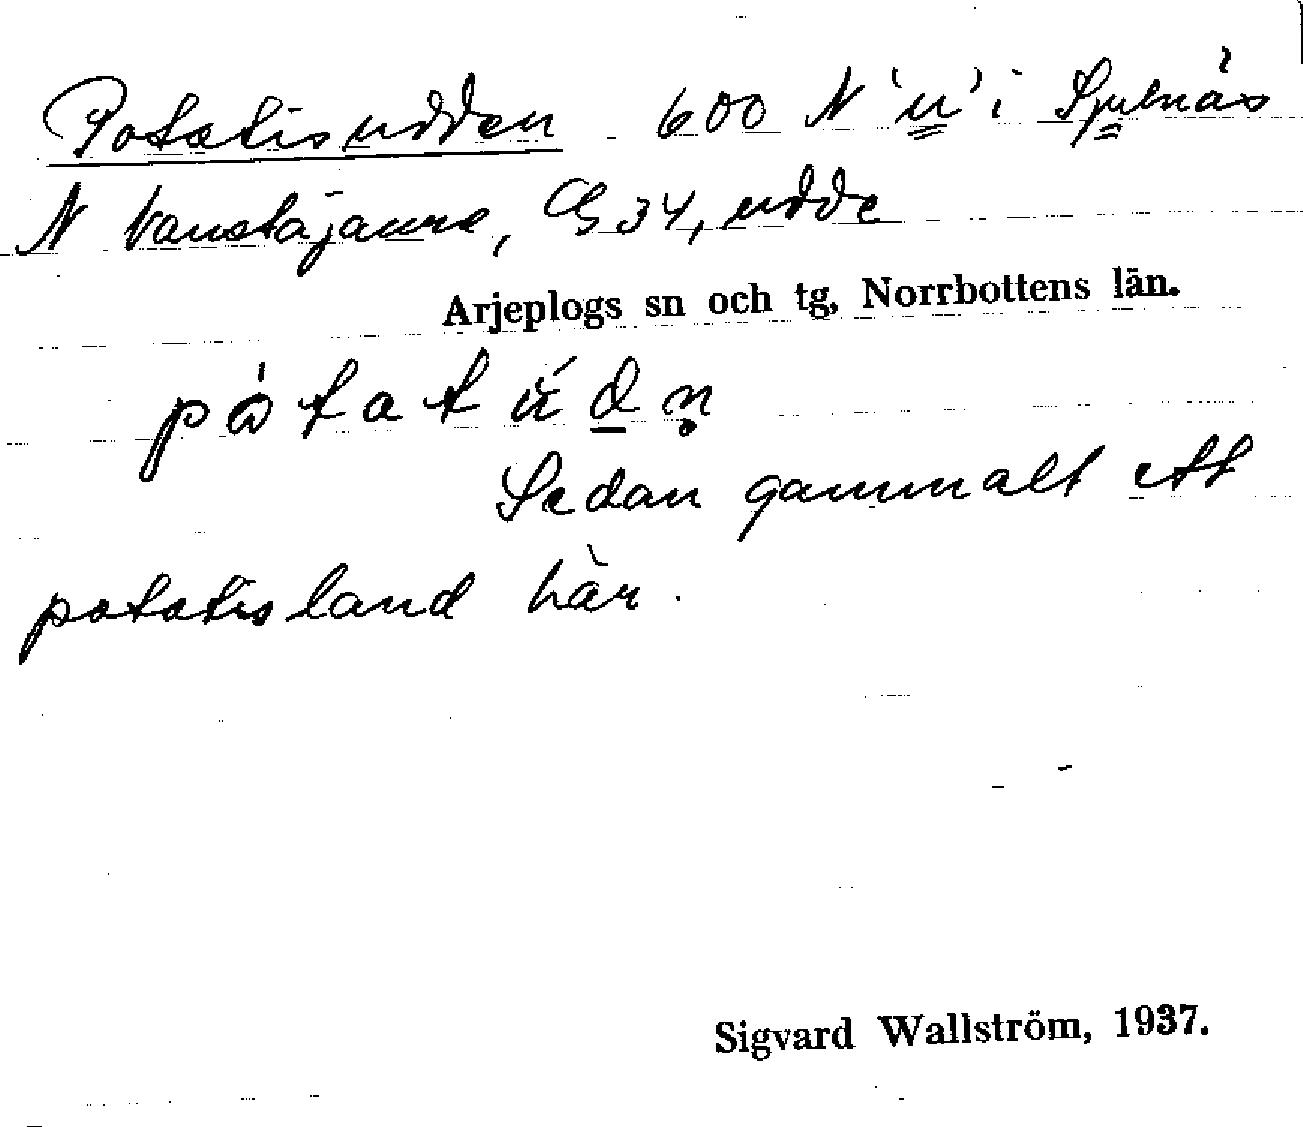 Potatisudden 600 N 'u' i Sjulnäs
N Vaustajaure, G 34, udde
Arjeplogs sn och tg, Norrbottens län.
Sedan gammalt ett
potatisland här.
Sigvard Wallström, 1937.